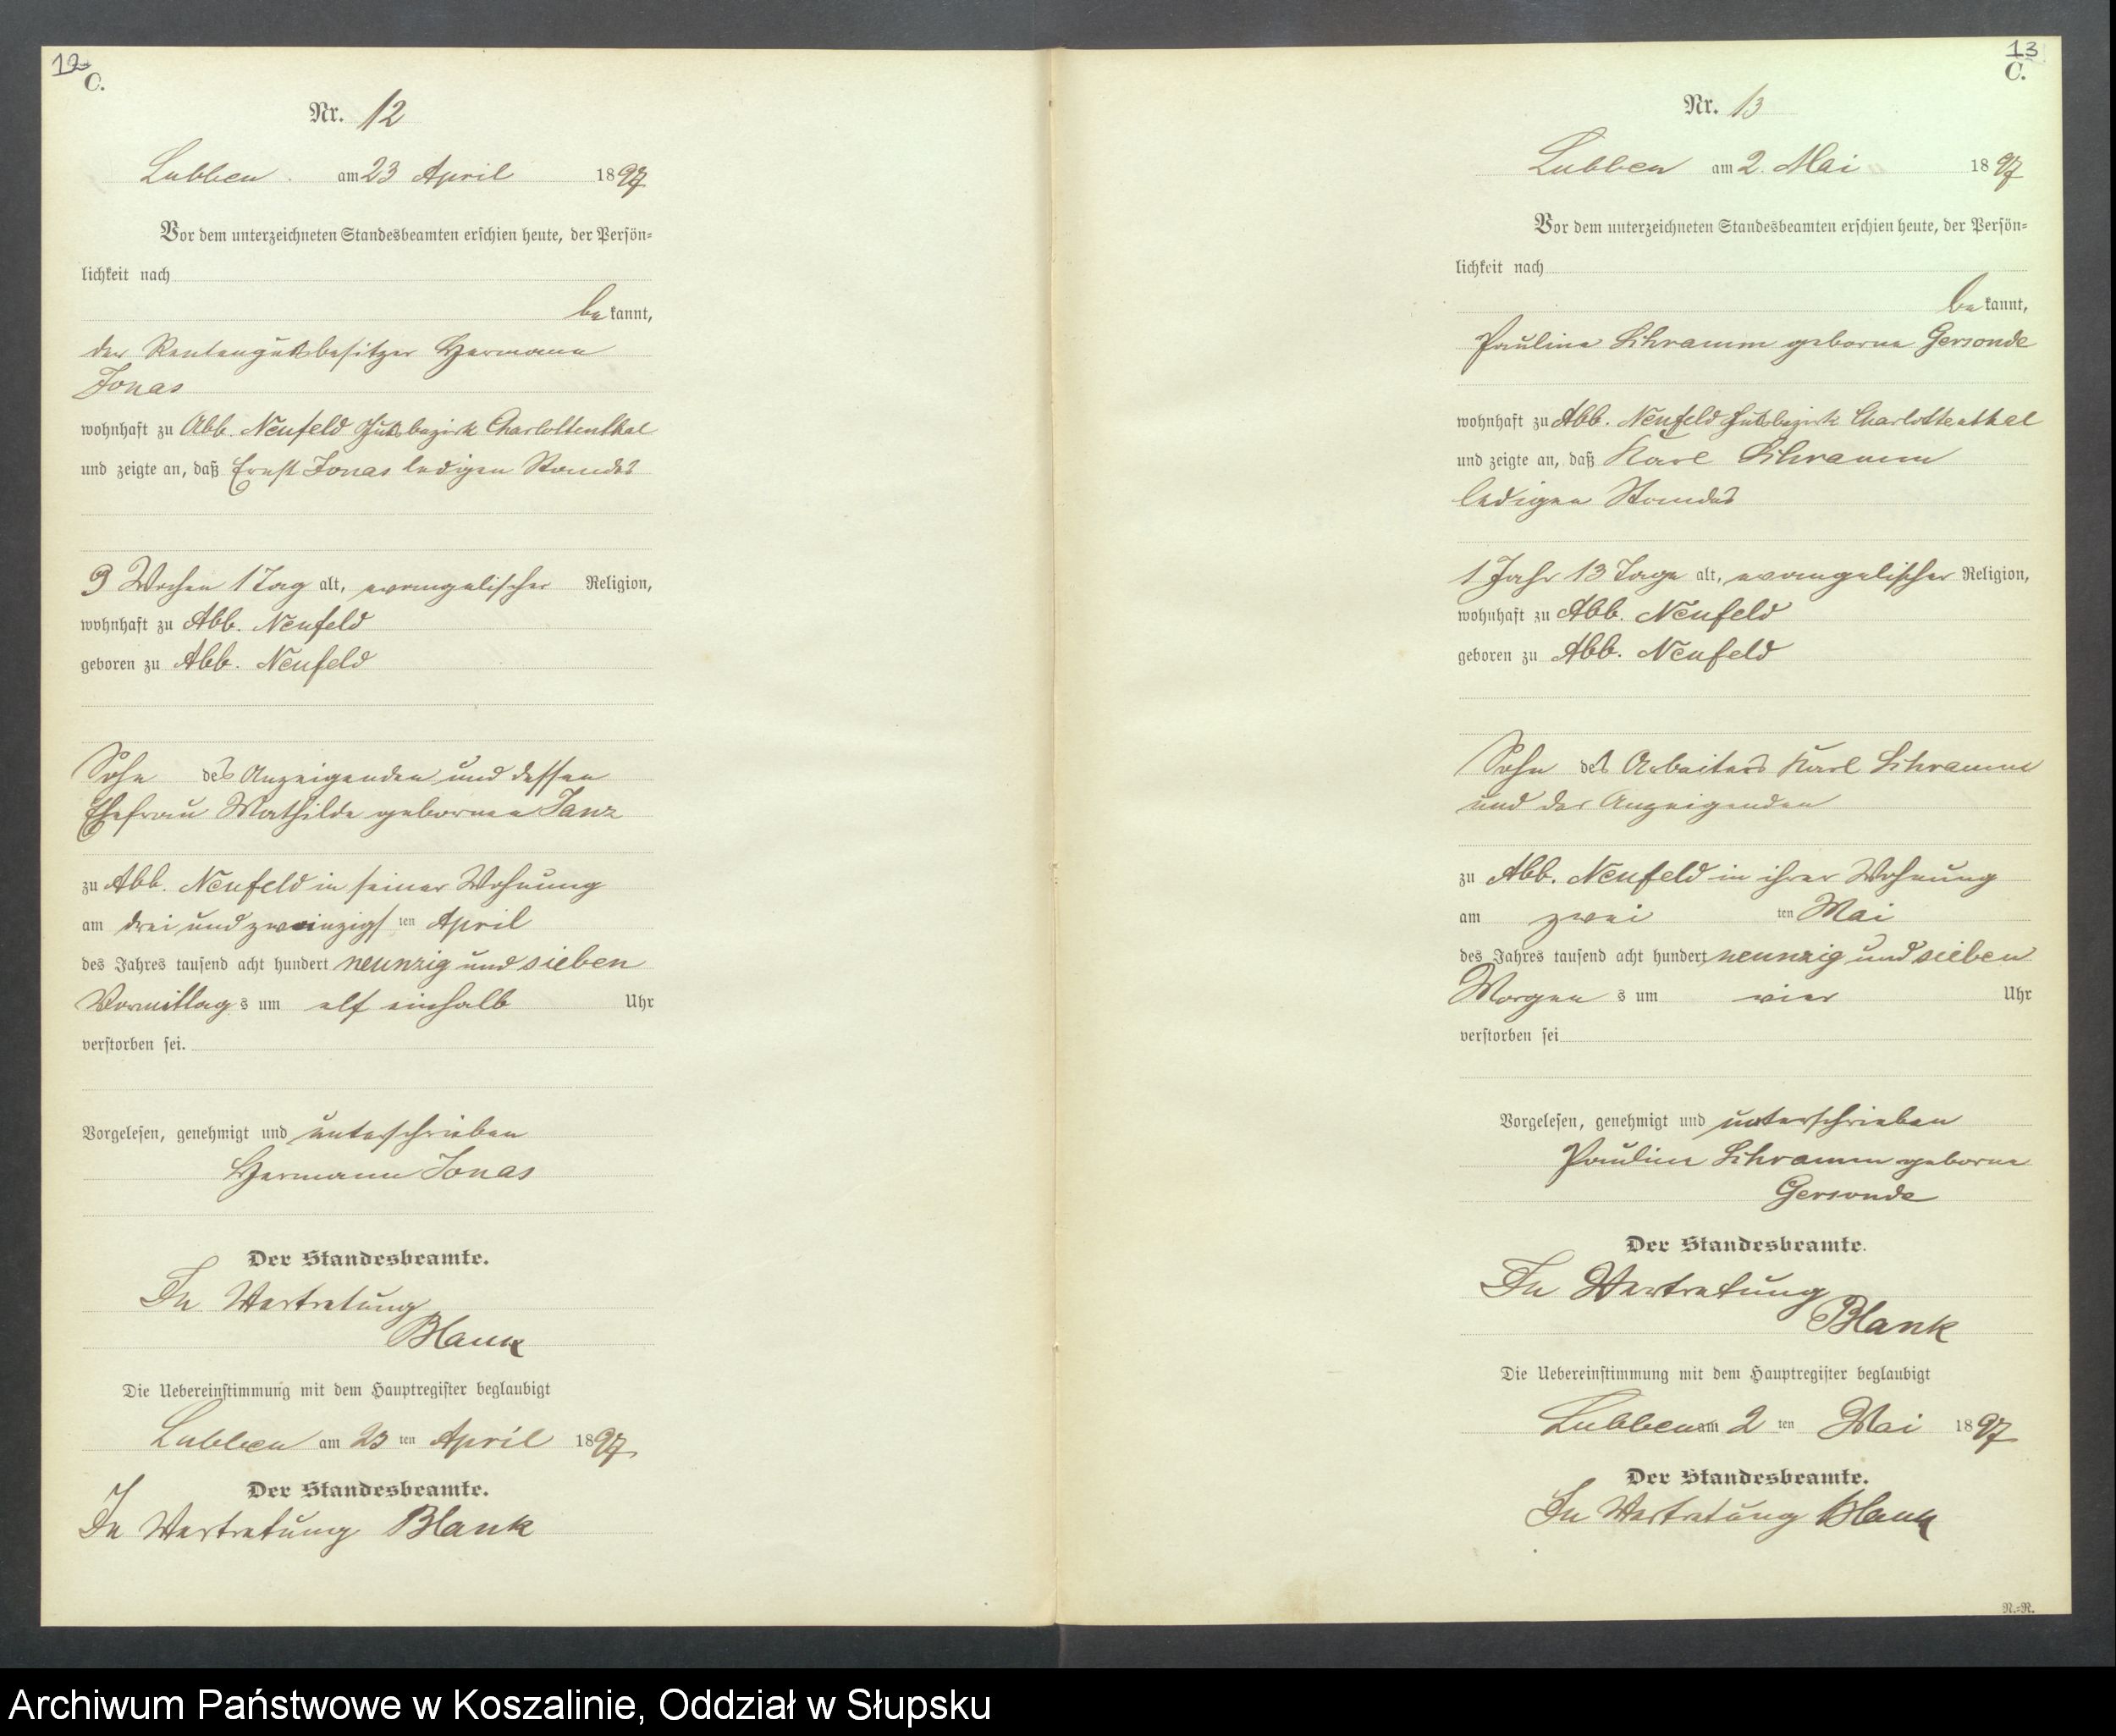 12
C.
Nr. 12
Lubben am 23 April 1897
Vor dem unterzeichneten Standesbeamten erschien heute, der Persön-
lichkeit nach
bekannt,
der Rentengutsbesitzer Hermann
Jonas
wohnhaft zu Abb. Neufeld Gutsbezirk Charlottenthal
und zeigte an, daß Ernst Jonas ledigen Standes
9 Wochen 1 Tag alt, evangelischer Religion,
wohnhaft zu Abb. Neufeld
geboren zu Abb. Neufeld
Sohn des Anzeigenden und dessen
Ehefrau Mathilde geborenen Janz
zu Abb. Neufeld in seiner Wohnung
am drei und zwanzigsten April
des Jahres tausend acht hundert neunzig und sieben
Vormittags um elf einhalb Uhr
verstorben sei.
Vorgelesen, genehmigt und unterschrieben
Hermann Jonas
Der Standesbeamte.
In Vertretung
Blank
Die Uebereinstimmung mit dem Hauptregister beglaubigt
Lubben am 23 ten April 1897
Der Standesbeamte.
In Vertretung Blank
13
C.
Nr. 13
Lubben am 2. Mai 1897
Vor dem unterzeichneten Standesbeamten erschien heute, der Persön-
lichkeit nach
bekannt,
Pauline Schramm geborne Gersonde
wohnhaft zu Abb. Neufeld Gutsbezirk Charlottenthal
und zeigte an, daß Karl Schramm
ledigen Standes
1 Jahr 13 Tage alt, evangelischer Religion,
wohnhaft zu Abb. Neufeld
geboren zu Abb. Neufeld
Sohn des Arbeiters Karl Schramm
und der Anzeigenden
zu Abb. Neufeld in ihrer Wohnung
am zwei ten Mai
des Jahres tausend acht hundert neunzig und sieben
Morgens um vier Uhr
verstorben sei
Vorgelesen, genehmigt und unterschrieben
Pauline Schramm geborne
Gersonde
Der Standesbeamte.
In Vertretung
Blank
Die Uebereinstimmung mit dem Hauptregister beglaubigt
Lubben am 2 ten Mai 1897
Der Standesbeamte.
In Vertretung Blank
N.=R.
Archiwum Państwowe w Koszalinie, Oddział w Słupsku